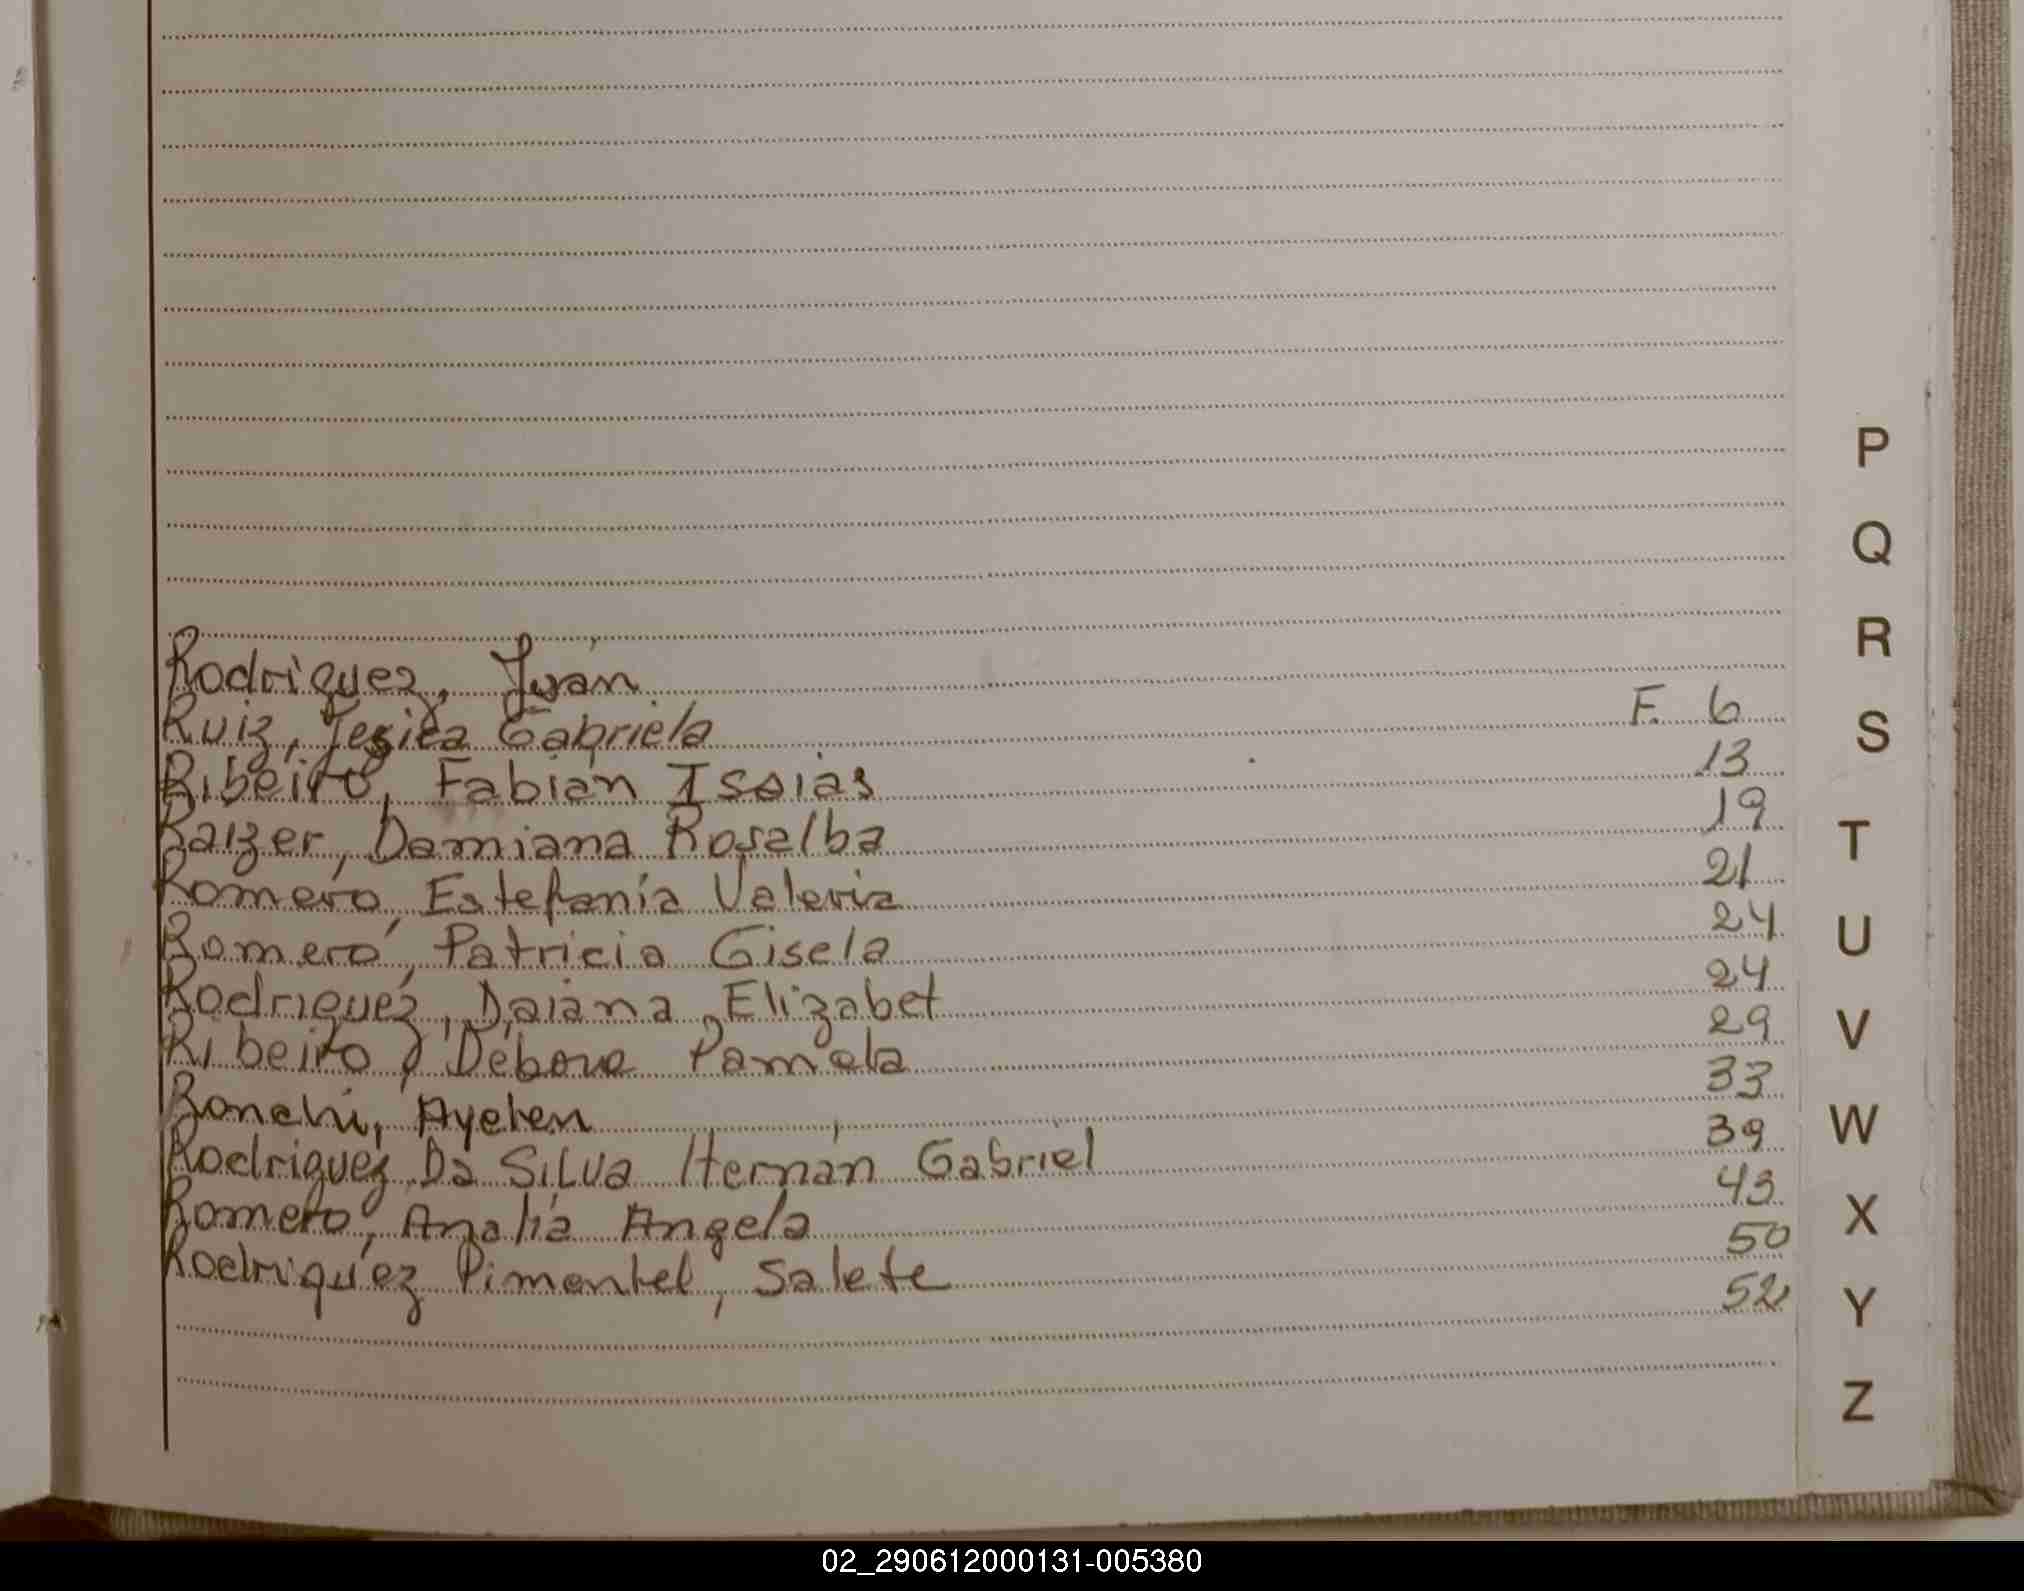 Rodriguez, Iván F. 6
Ruiz, Jesica Gabriela 13
Ribeiro, Fabián Isaias 19
Raizer, Damiana Rosalba 21
Romero, Estefanía Valeria 24
Romero, Patricia Gisela 24
Rodriguez, Daiana Elizabet 29
Ribeiro, Débora Pamela 33
Ronchi, Ayelen 39
Rodriguez Da Silva Hernán Gabriel 43
Romero, Analía Angela 50
Rodriguez Pimentel, Salete 52
P
Q
R
S
T
U
V
W
X
Y
Z
02_290612000131-005380